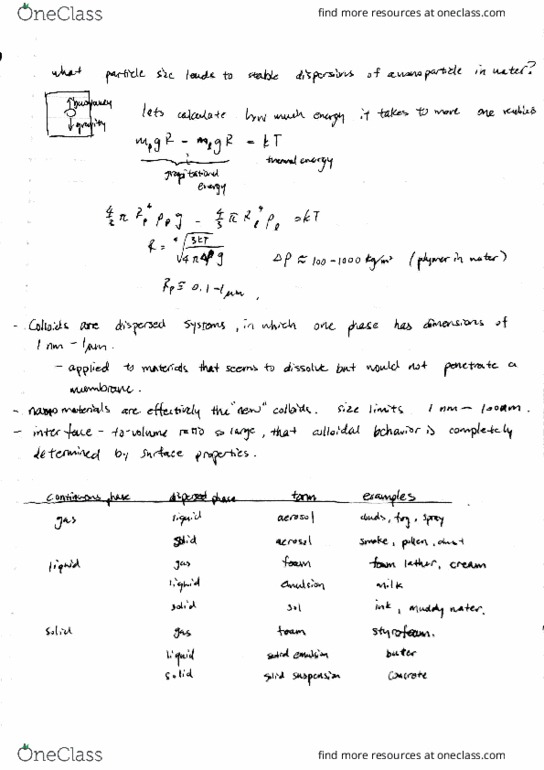 OneClass find more resources at oneclass.com
what particle size leads to stable dispersions of a nanoparticle in water?
↑buoyancy
↓gravity
lets calculate how much energy it takes to move one radius
mₚgR − mₗgR = kT
gravitational energy
thermal energy
4/3 π Rₚ⁴ ρₚ g − 4/3 π Rₗ⁴ ρₗ = kT
R = ⁴√(3kT / 4πΔρg) Δρ ≈ 100-1000 kg/m³ (polymer in water)
Rₚ ≅ 0.1-1 μm,
- Colloids are dispersed systems, in which one phase has dimensions of
1 nm - 1 μm.
- applied to materials that seems to dissolve but would not penetrate a
membrane.
- nanomaterials are effectively the "new" colloids. size limits 1 nm - 100nm.
- interface - to-volume ratio so large, that colloidal behavior is completely
determined by surface properties.
continuous phase dispersed phase term examples
gas liquid aerosol clouds, fog, spray
solid aerosol smoke, pollen, dust
liquid gas foam foam lather, cream
liquid emulsion milk
solid sol ink, muddy water.
solid gas foam styrofoam.
liquid solid emulsion buter
solid solid suspension concrete
OneClass find more resources at oneclass.com